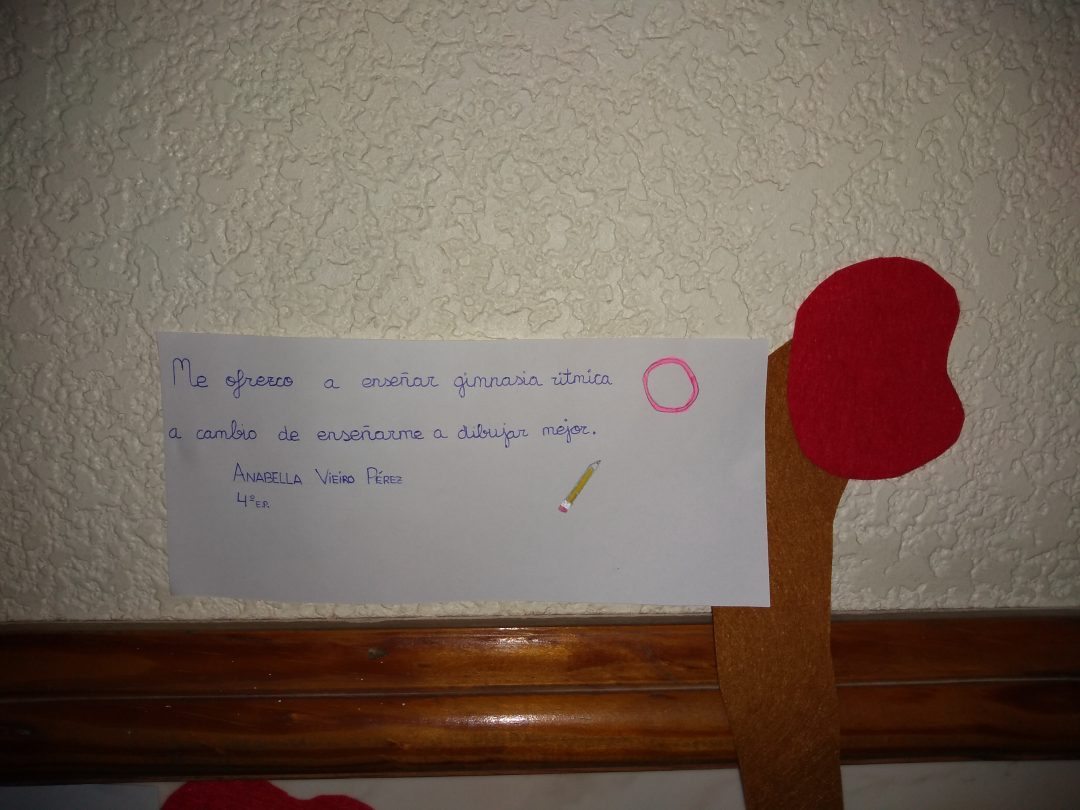 Me ofrezco a enseñar gimnasia ritmica
a cambio de enseñarme a dibujar mejor.
ANABELLA VIEIRO PÉREZ
4º E.P.